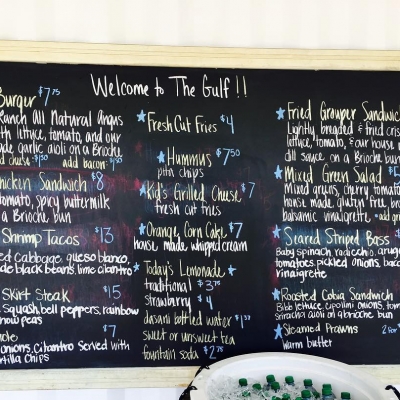 Welcome to The Gulf!!
Burger $7.75
Ranch All Natural Angus
with lettuce, tomato, and our
garlic aioli on a Brioche
cheese - $.50 add bacon - $1.50
Chicken Sandwich $8
tomato, spicy buttermilk
a Brioche bun
Shrimp Tacos $13
cabbage, queso blanco,
black beans, lime cilantro
Skirt Steak $15
squash, bell peppers, rainbow
snow peas
$7
onions, cilantro Served with
tortilla chips
Fresh Cut Fries $4
Hummus $7.50
pita chips
Kid's Grilled Cheese $7
fresh cut fries
Orange Corn Cake $7
house made whipped cream
Today's Lemonade
traditional $3.75
strawberry $4
dasani bottled water $1.50
sweet or unsweet tea
fountain soda $2.75
Fried Grouper Sandwich
Lightly breaded & fried
lettuce, tomato, & our house
dill sauce on a Brioche bun
Mixed Green Salad
Mixed greens, cherry tomato
house made gluten free
balsamic vinaigrette
Seared Striped Bass $
Baby spinach, radicchio,
tomatoes, pickled onions, bacon
vinaigrette
Roasted Cobia Sandwich
Bibb lettuce, cipolini onions,
sriracha aioli on a brioche bun
Steamed Prawns 2 for
warm butter